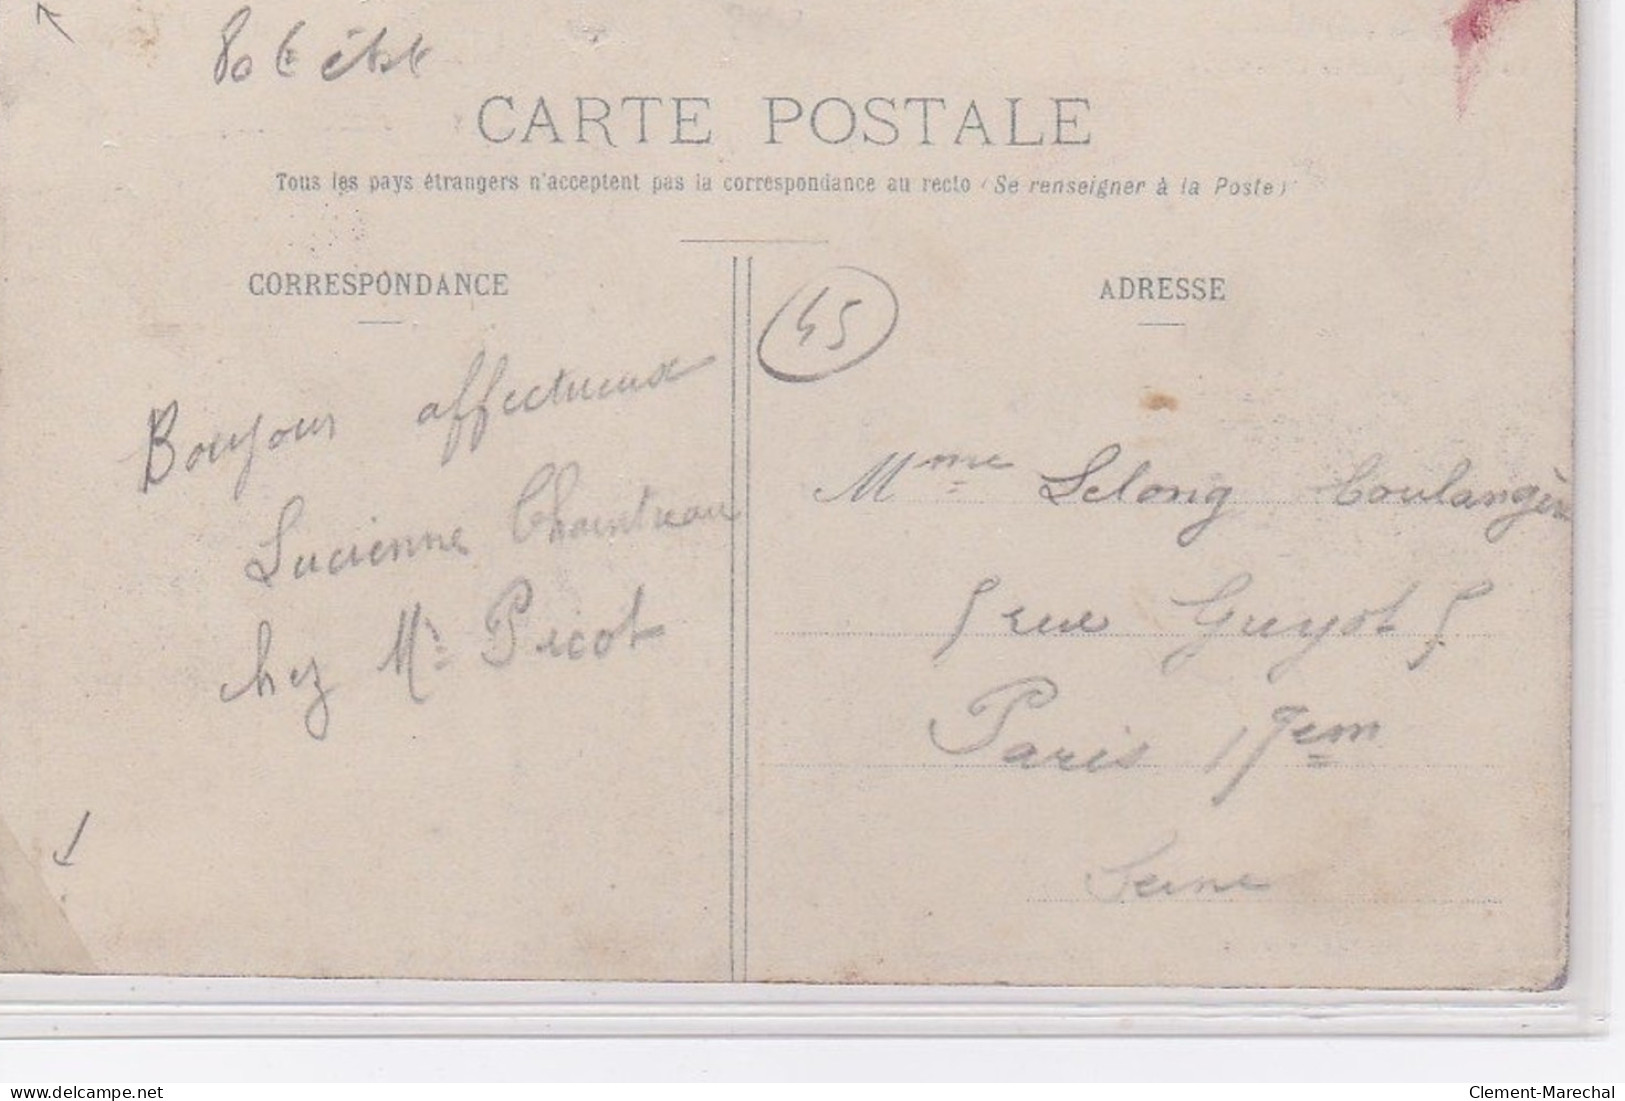 80 € état
CARTE POSTALE
Tous les pays étrangers n'acceptent pas la correspondance au recto (Se renseigner à la Poste)
CORRESPONDANCE
ADRESSE
45
Bonjour affectueux
Lucienne Chaintreau
chez Mr Picot
Mme Lelong Boulangère
5 rue Guyot 5
Paris 17em
Seine
www.delcampe.net
Clement-Marechal